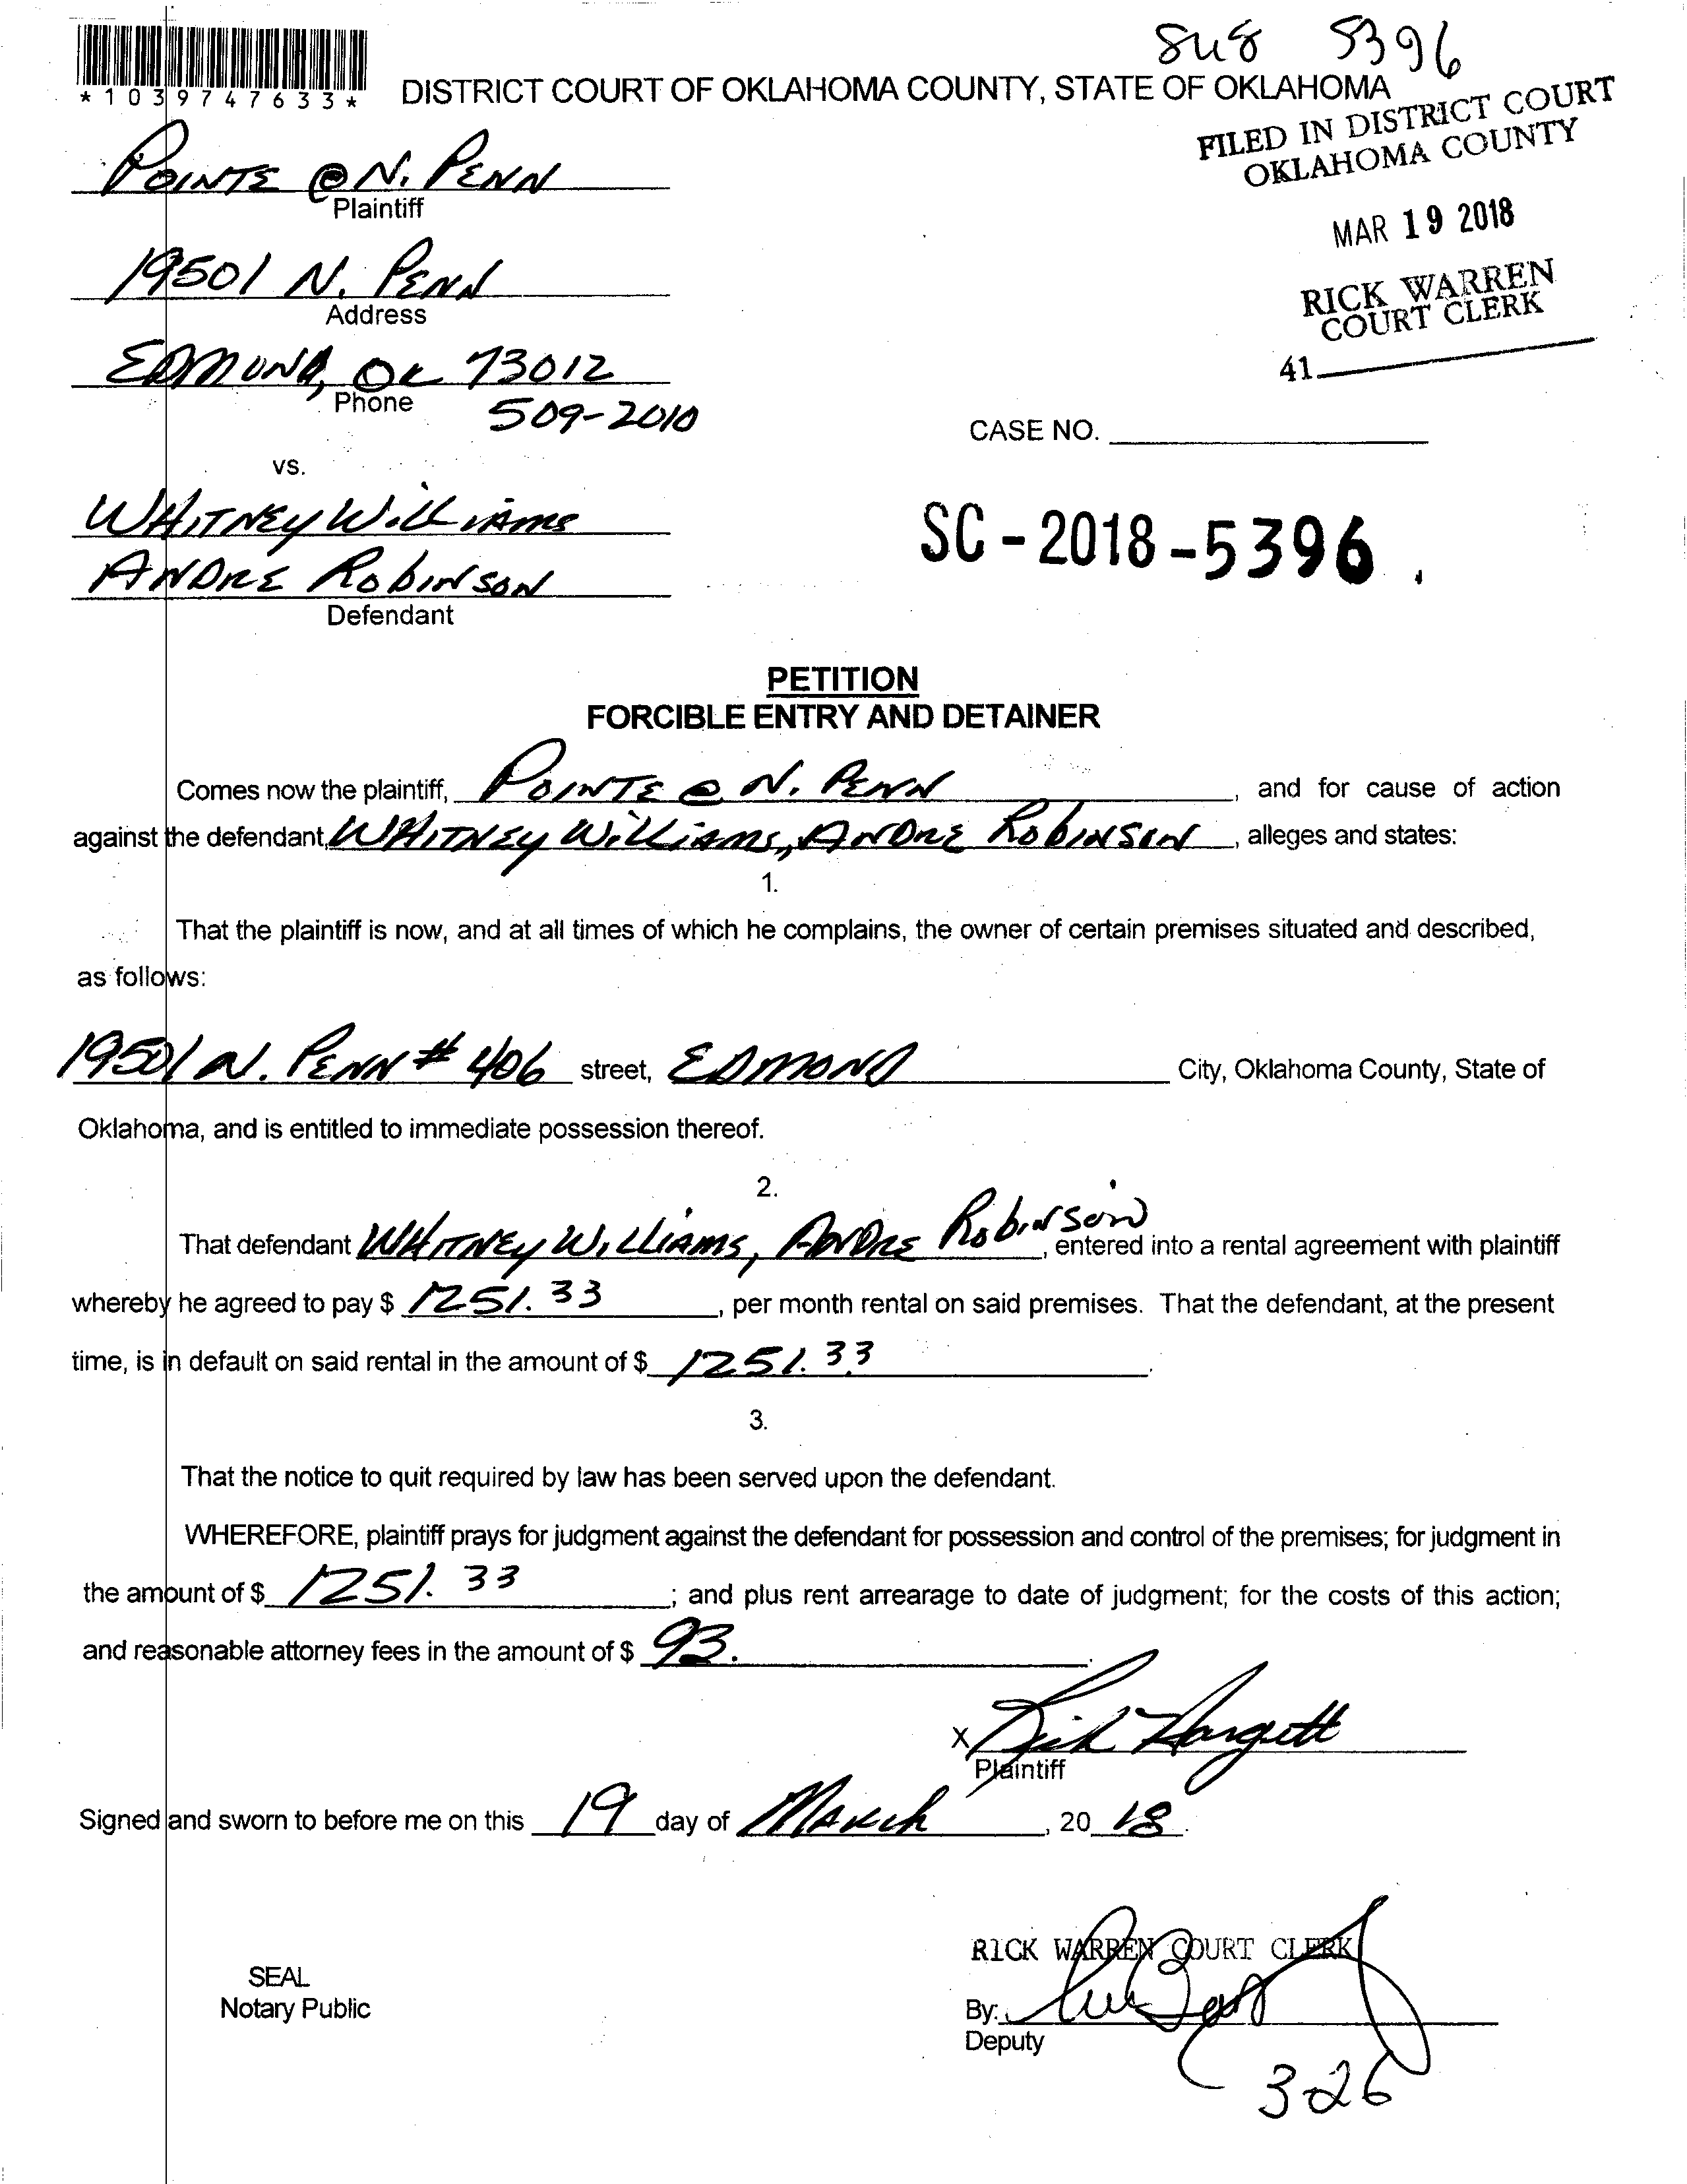 SU8 5396
*1039747633*
DISTRICT COURT OF OKLAHOMA COUNTY, STATE OF OKLAHOMA
FILED IN DISTRICT COURT
OKLAHOMA COUNTY
MAR 19 2018
RICK WARREN
COURT CLERK
41
POINTE @ N. PENN
Plaintiff
19501 N. PENN
Address
EDMOND, OK 73012
Phone
509-2010
CASE NO.
vs.
WHITNEY WILLIAMS
ANDRE ROBINSON
Defendant
SC-2018-5396
PETITION
FORCIBLE ENTRY AND DETAINER
Comes now the plaintiff, POINTE @ N. PENN, and for cause of action
against the defendant, WHITNEY WILLIAMS, ANDRE ROBINSON, alleges and states:
1.
That the plaintiff is now, and at all times of which he complains, the owner of certain premises situated and described,
as follows:
19501 N. PENN # 406 street, EDMOND City, Oklahoma County, State of
Oklahoma, and is entitled to immediate possession thereof.
2.
That defendant WHITNEY WILLIAMS, ANDRE ROBINSON, entered into a rental agreement with plaintiff
whereby he agreed to pay $ 1251.33, per month rental on said premises. That the defendant, at the present
time, is in default on said rental in the amount of $ 1251.33.
3.
That the notice to quit required by law has been served upon the defendant.
WHEREFORE, plaintiff prays for judgment against the defendant for possession and control of the premises; for judgment in
the amount of $ 1251.33; and plus rent arrearage to date of judgment; for the costs of this action;
and reasonable attorney fees in the amount of $ 93.
X Rick Hargett
Plaintiff
Signed and sworn to before me on this 19 day of March, 2018.
RICK WARREN COURT CLERK
SEAL
Notary Public
By:
Deputy
326